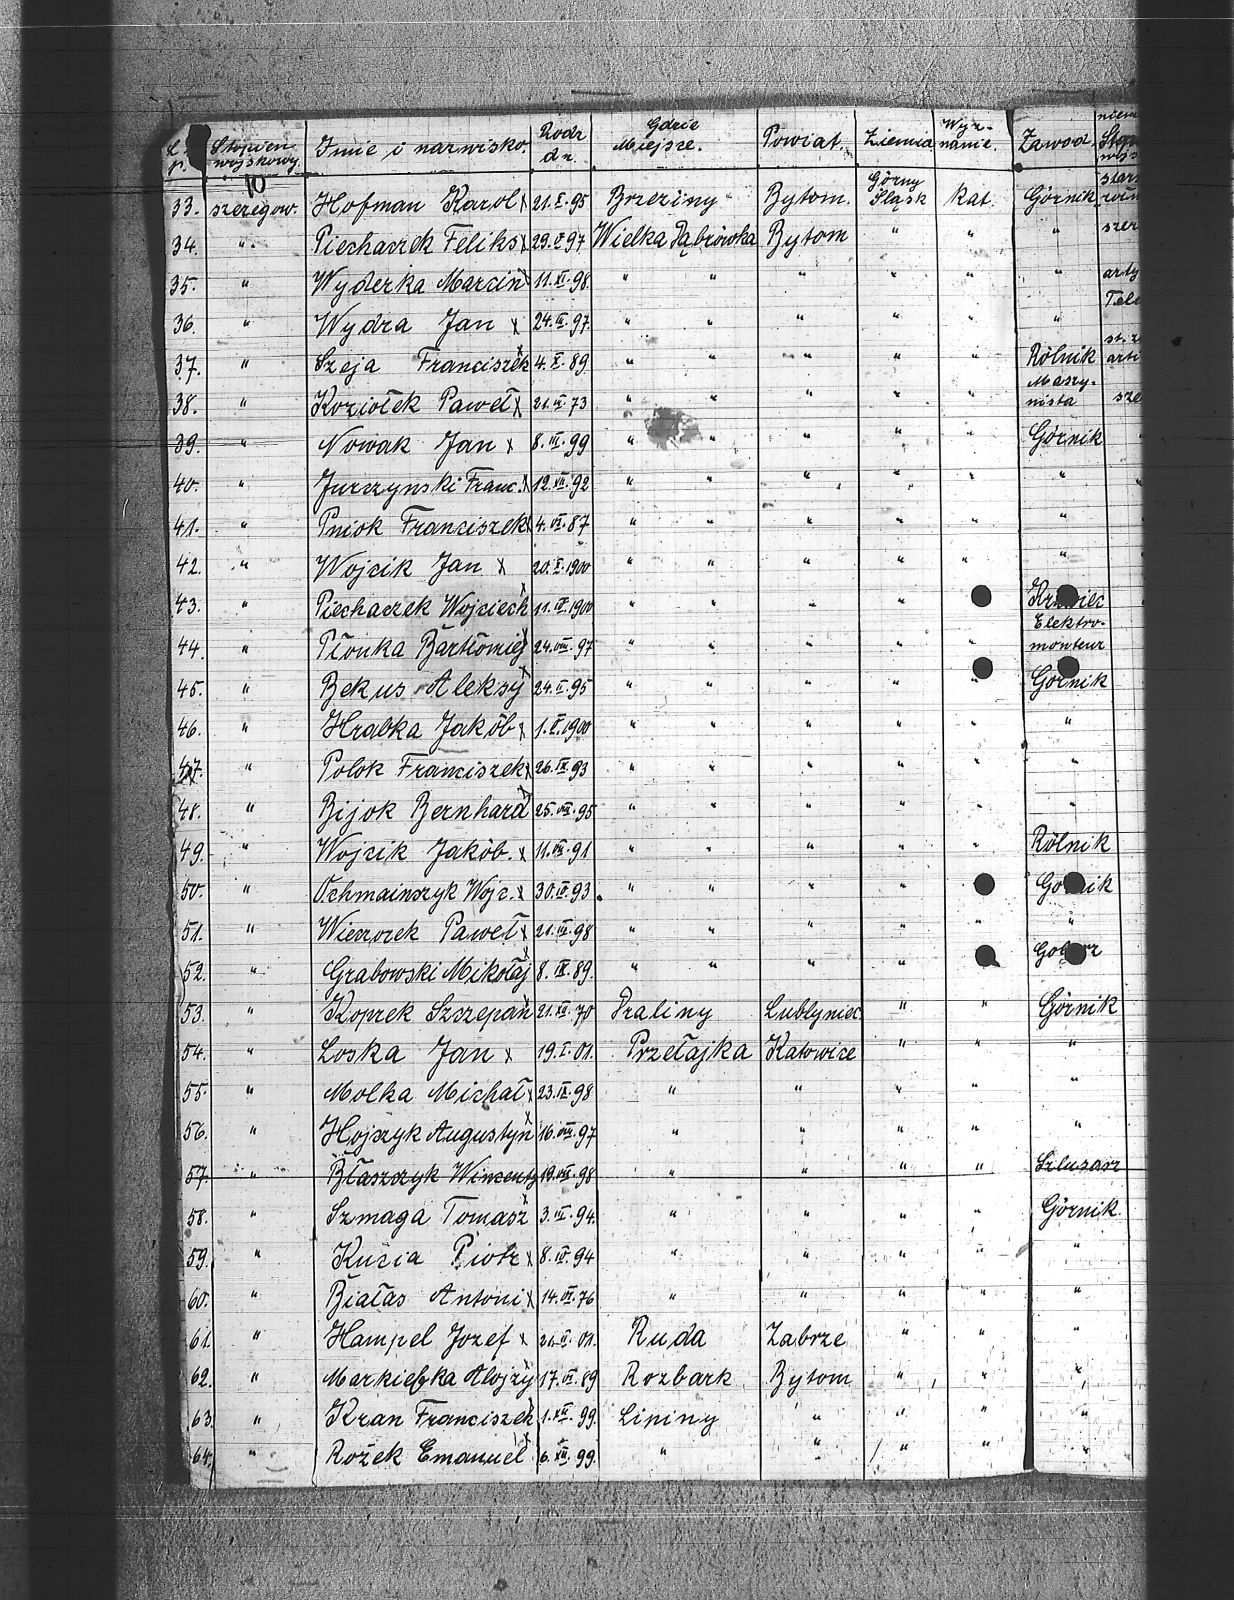 L. p. Stopień wojskowy. Imię i nazwisko. Rodz. dn. Gdzie Miejsce. Powiat. Ziemia Wyznanie. Zawod. niem
10
33. szeregow. Hofman Karol x 21.X.95 Brzeziny Bytom. Górny Śląsk kat. Górnik
34. " Piechaczek Feliks x 29.X.97 Wielka Dąbrówka Bytom " " " szer
35. " Wyderka Marcin x 11.XI.98. " " " " " " arty
36. " Wydra Jan x 24.III.97. " " " " " " Tele
37. " Szeja Franciszek x 4.X.89 " " " " " Rólnik
38. " Koziołek Paweł x 21.VI.73 " " " " " Maszynista sze
39. " Nowak Jan x 8.III.99 " " " " " Górnik "
40. " Jurczynski Franc. x 12.VII.92 " " " " " "
41. " Pniok Franciszek x 4.VI.87 " " " " " "
42. " Wojcik Jan x 20.X.1900 " " " " " "
43. " Piechaczek Wojciech x 11.IV.1900 " " " " Krawiec
44. " Płonka Bartłomiej x 24.VIII.97 " " " " " Elektro-monteur
45. " Bekus Aleksy x 24.II.95 " " " " " Górnik
46. " Hrabka Jakób x 1.X.1900 " " " " " "
47. " Polok Franciszek x 26.IX.93 " " " " " "
48. " Bijok Bernhard x 25.VIII.95 " " " " " "
49. " Wojcik Jakób. x 11.VII.91 " " " " " Rólnik
50. " Ochmainszyk Wojc. x 30.IV.93. " " " " Górnik
51. " Wieczorek Paweł x 21.III.98 " " " " " "
52. " Grabowski Mikołaj x 8.IX.89. " " " "
53. " Kopzek Szczepan x 21.XII.70 Praliny Lublyniec. " " Górnik
54. " Loska Jan x 19.I.01. Przełajka Katowice " " "
55. " Molka Michał x 23.IX.98 " " " " "
56. " Hojszyk Augustyn x 16.VIII.97 " " " " "
57. " Błaszczyk Wincenty 19.VII.98 " " " " Szlusarz
58. " Szmaga Tomasz x 3.III.94. " " " " Górnik
59. " Kuzia Piotr x 8.IV.94 " " " " "
60. " Białas Antoni x 14.VI.76 " " " " "
61. " Hampel Jozef x 21.II.01. Ruda Zabrze " " "
62. " Markiefka Alojzy x 17.VI.89 Rozbark Bytom " " "
63. " Kran Franciszek 1.XII.99. Lipiny " " " "
64. " Rożek Emanuel x 6.XII.99. " " " " "